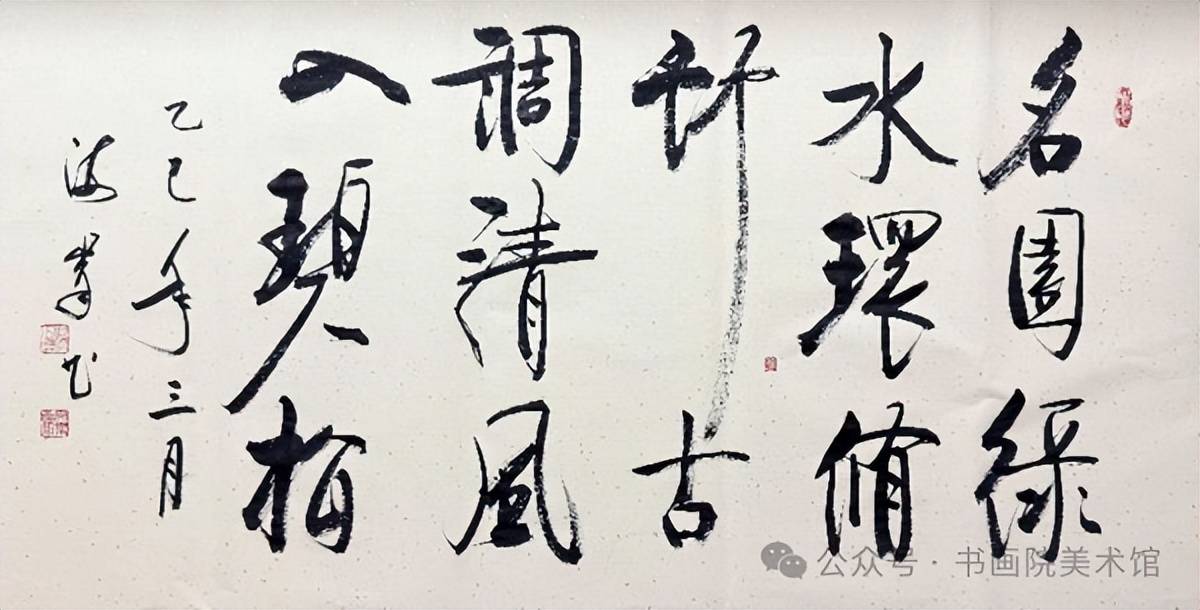 名園綠
水環脩
竹古
調清風
入碧梧
乙巳年三月
海书
公众号 · 书画院美术馆